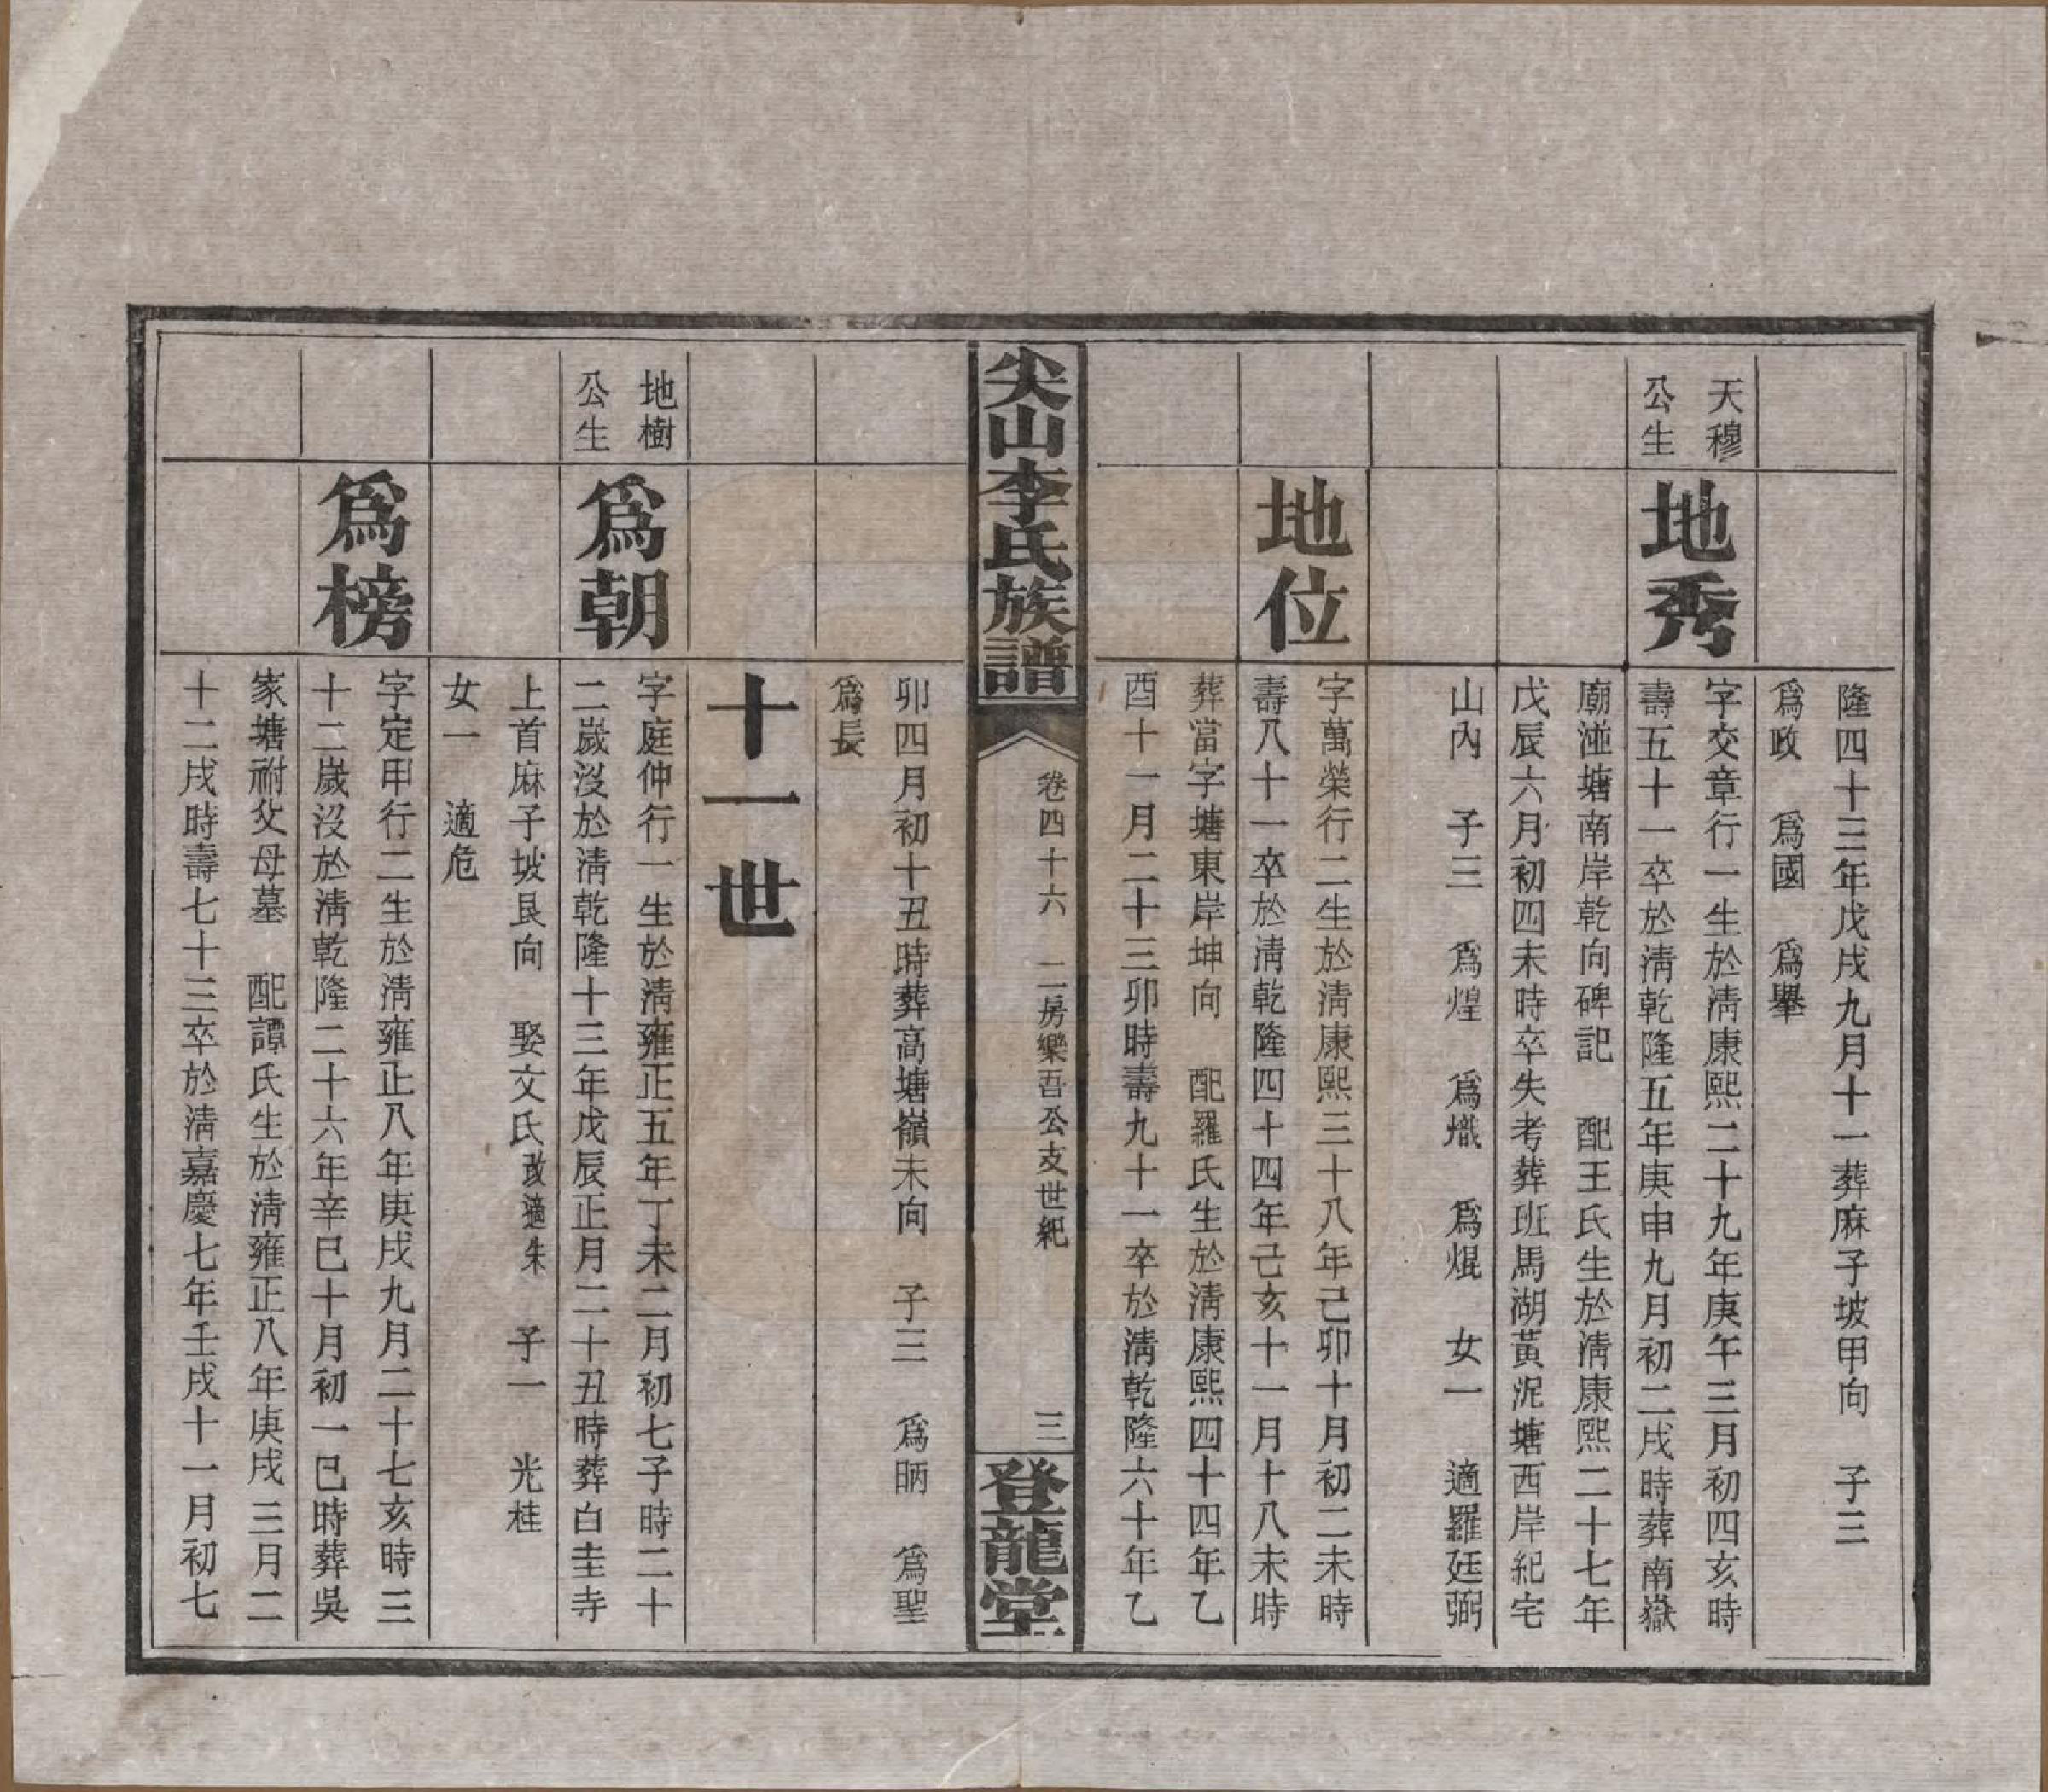 隆四十三年戊戌九月十一葬麻子坡甲向　子三
爲政　爲國　爲舉
天穆
公生
地秀
字交章行一生於淸康熙二十九年庚午三月初四亥時
壽五十一卒於淸乾隆五年庚申九月初二戌時葬南嶽
廟湴塘南岸乾向碑記　配王氏生於淸康熙二十七年
戊辰六月初四未時卒失考葬班馬湖黃泥塘西岸紀宅
山內　子三　爲煌　爲熾　爲焜　女一　適羅廷弼
地位
字萬榮行二生於淸康熙三十八年己卯十月初二未時
壽八十一卒於淸乾隆四十四年己亥十一月十八未時
葬當字塘東岸坤向　配羅氏生於淸康熙四十四年乙
酉十一月二十三卯時壽九十一卒於淸乾隆六十年乙
尖山李氏族譜
卷四十六　二房樂吾公支世紀
三
登龍堂
卯四月初十丑時葬高塘嶺未向　子三　爲昞　爲聖
爲長
十一世
地樹
公生
爲朝
字庭仲行一生於淸雍正五年丁未二月初七子時二十
二歲沒於淸乾隆十三年戊辰正月二十丑時葬白圭寺
上首麻子坡艮向　娶文氏改適朱　子一　光桂
女一　適危
爲榜
字定甲行二生於淸雍正八年庚戌九月二十七亥時三
十二歲沒於淸乾隆二十六年辛巳十月初一巳時葬吳
家塘祔父母墓　配譚氏生於淸雍正八年庚戌三月二
十二戌時壽七十三卒於淸嘉慶七年壬戌十一月初七